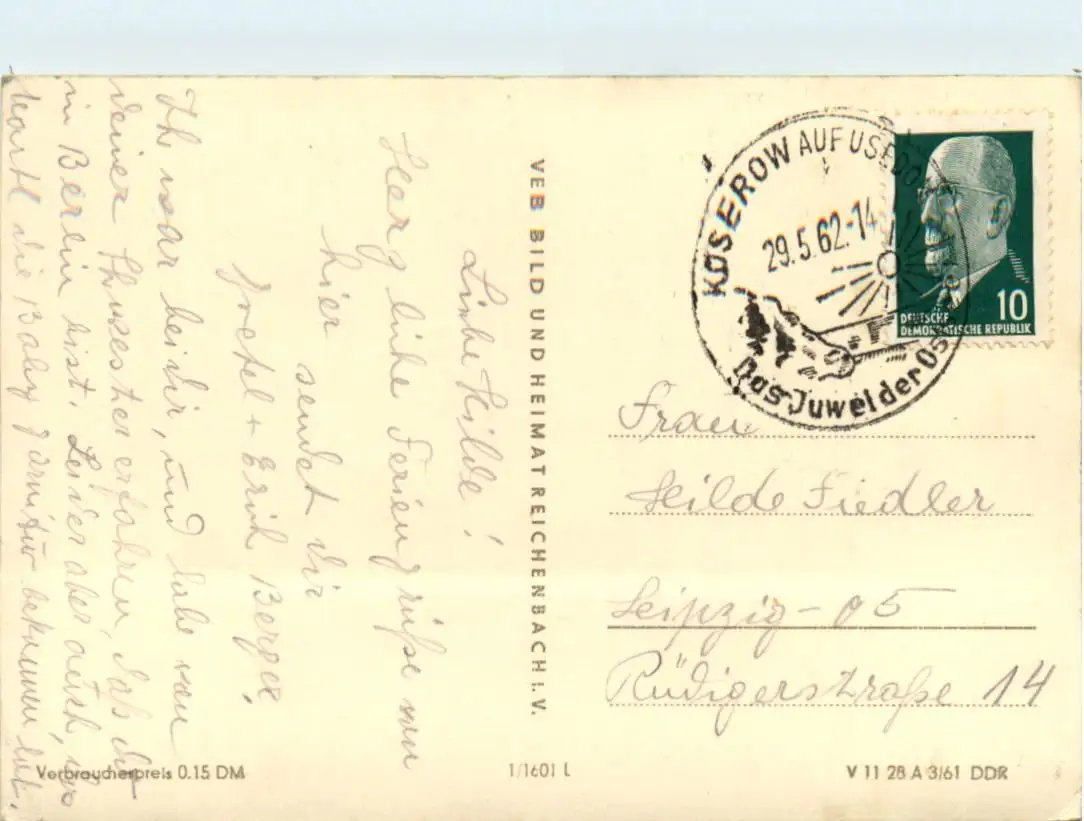 Liebe Hilde!
Herzliche Feriengrüße von
hier sendet dir
Gretel + Erich Berger.
Ich war bei dir, und habe von
deiner Schwester erfahren, daß du
in Berlin bist. Leider aber auch, das
die Baby garnitur bekommen hat.
VEB BILD UND HEIMAT REICHENBACH I. V.
KOSEROW AUF USEDO
29.5.62-14
Das Juwel der Os
10
DEUTSCHE
DEMOKRATISCHE REPUBLIK
Frau
Hilde Fiedler
Leipzig - 05
Rüdigerstraße 14
Verbraucherpreis 0.15 DM
1/1601 L
V 11 28 A 3/61 DDR